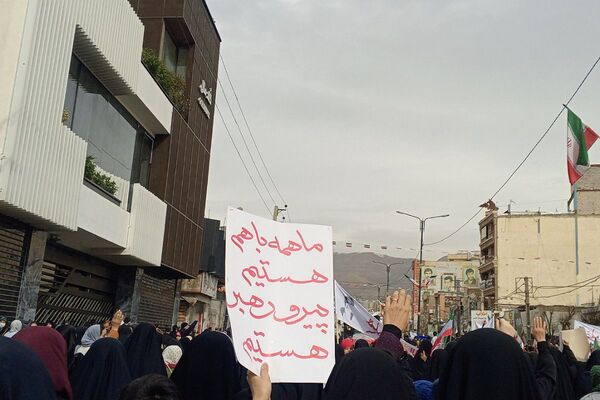 ما همه با هم
هستیم
پیرو رهبر
هستیم